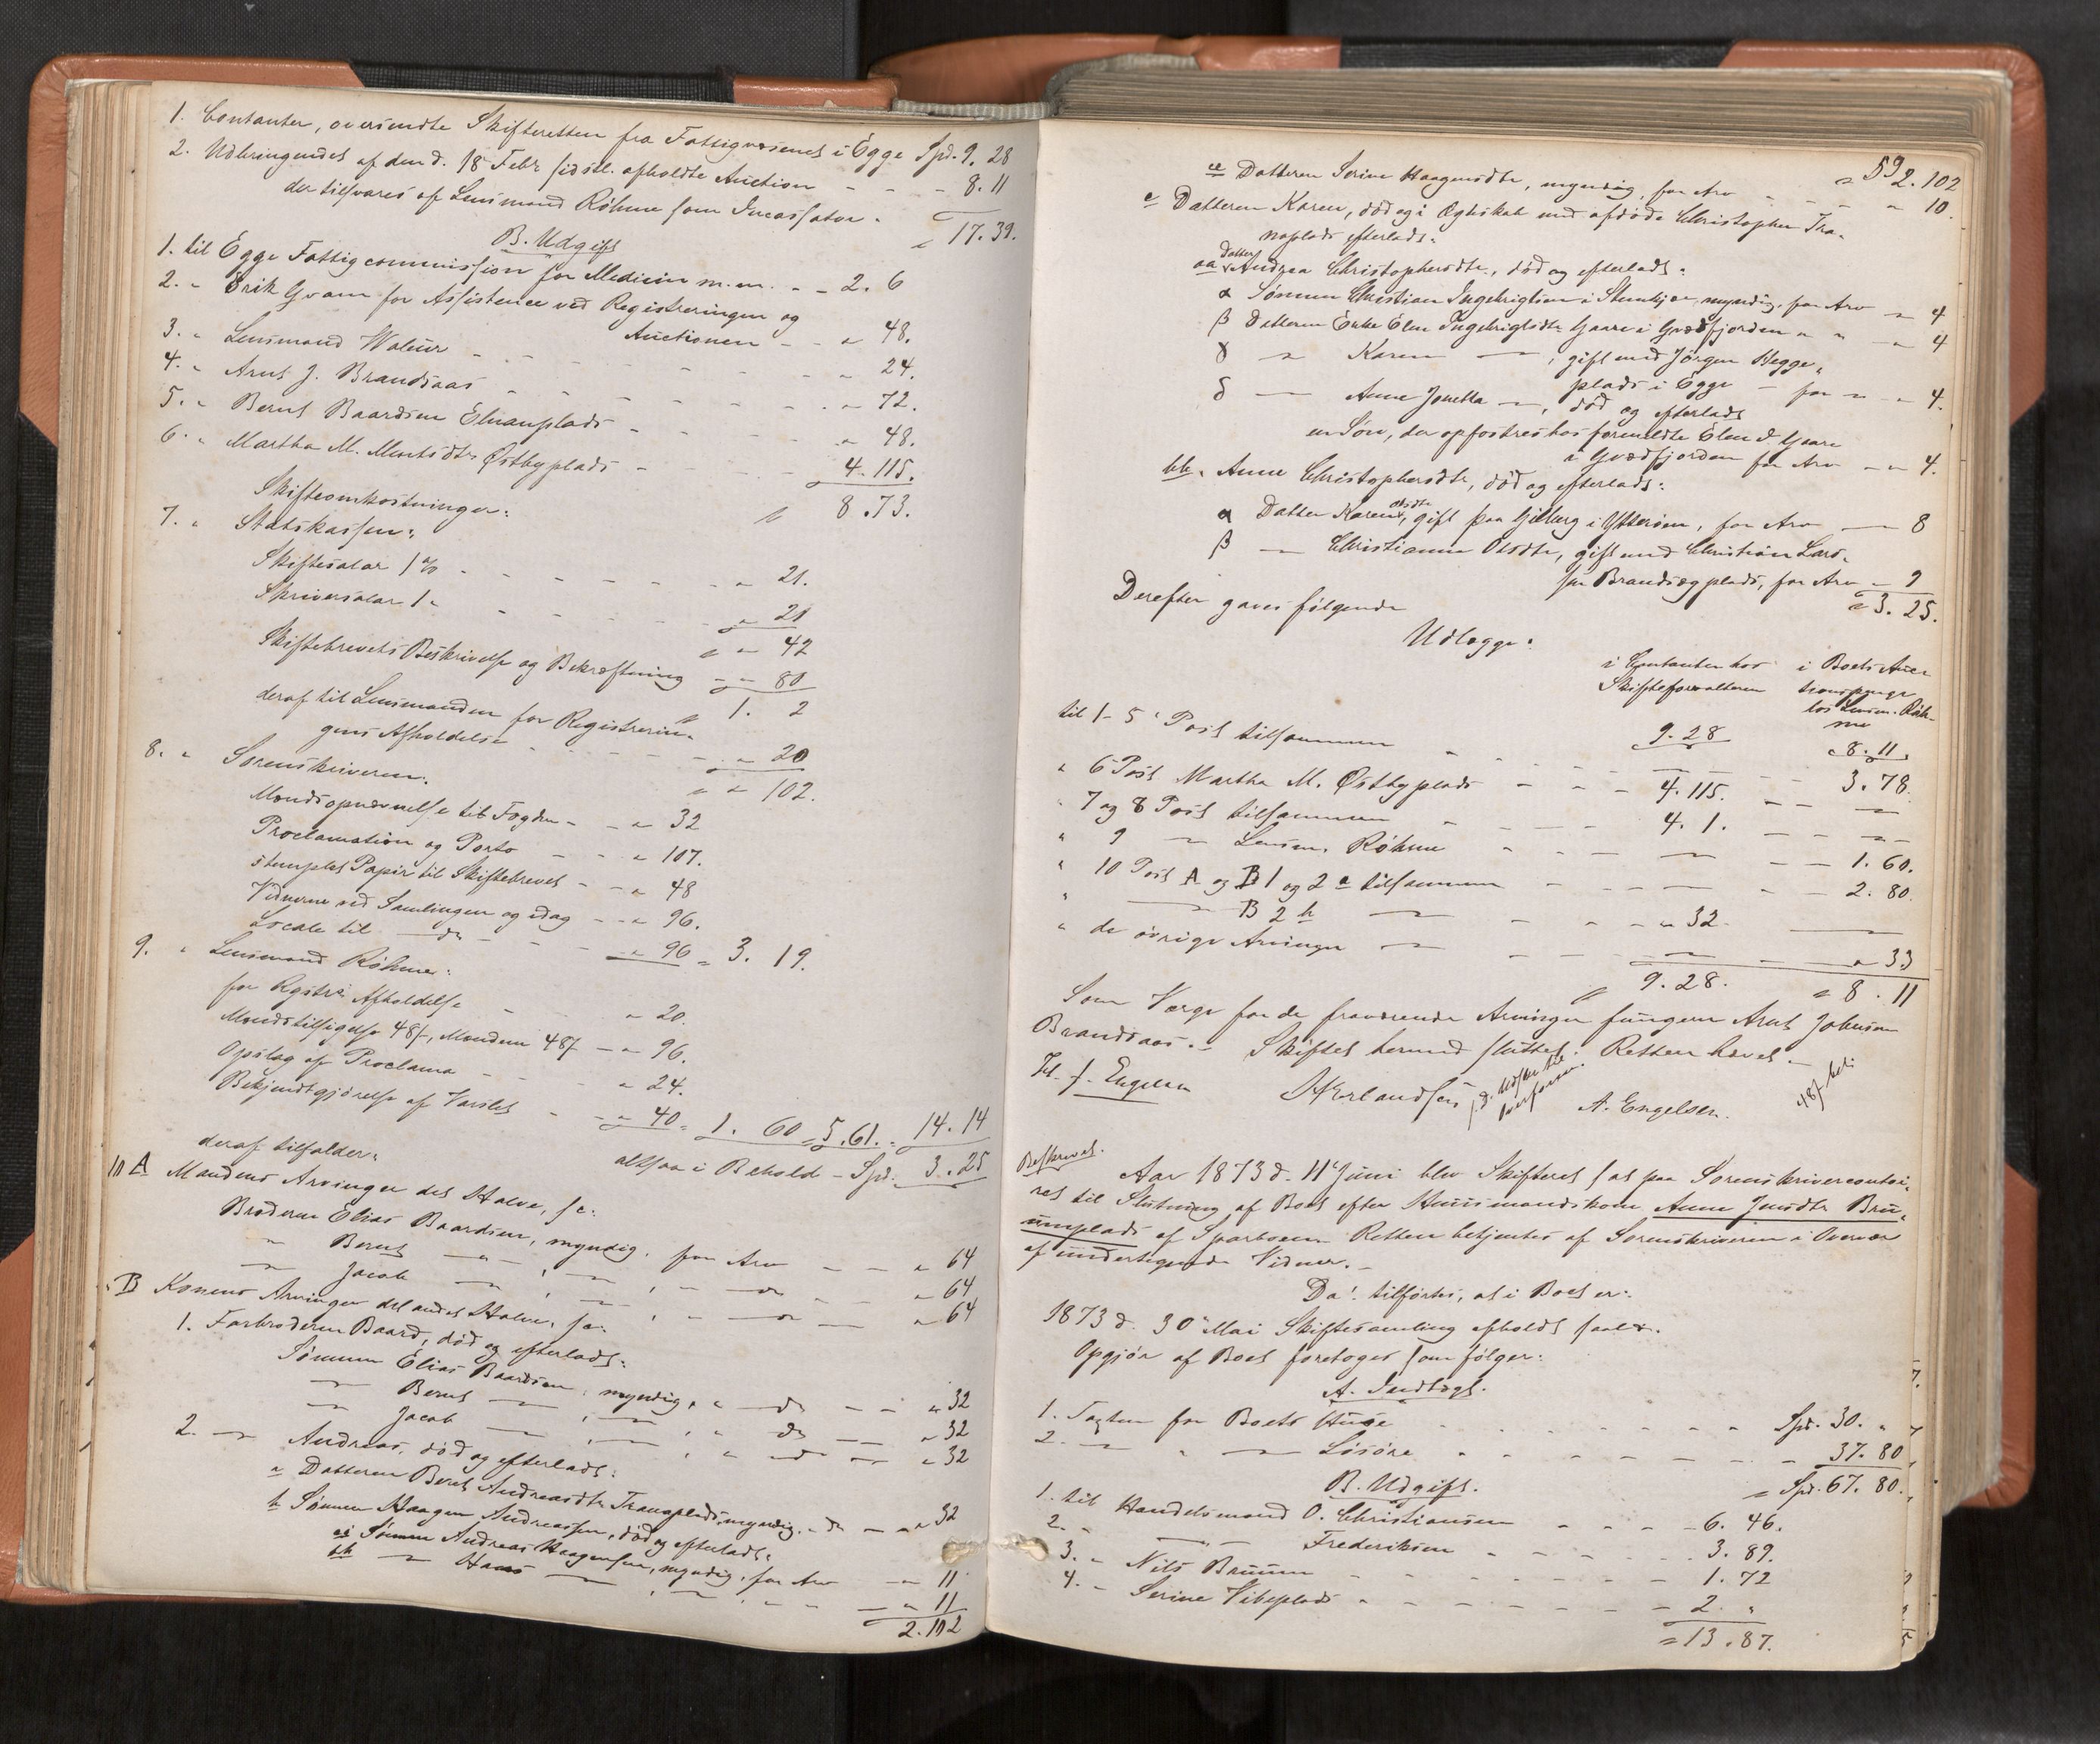 1. Contanter, oversendte Skifteretten fra Fattigvæsenet i Egge Spd. 9. 28
2. Udbringendet af den d. 18 Febr sidstl. afholdte Auction - - - 8. 11
der tilsvares af Lensmand Röhme som Incassator. " 17. 39.
B. Udgift
1. til Egge Fattigcommission for Medicin m. m. - - 2. 6
2. " Erik Gram for Assistence ved Registreringen og
Auctionen - - " 48.
3. " Lensmand Wolüer - - - - " 24.
4. " Arnt J. Brandsaas - - - - " 72.
5. " Bernt Baardsen Elvanplads - - - " 48.
6. " Martha M. Mentsdtr Östbyplads - - - 4. 115.
" 8. 73.
Skifteomkostninger:
7. " Statskassen:
Skiftesalar 1 % - - - - " 21.
Skriversalar 1 " - - - " 21
" " 42
Skiftebrevets Beskrivelse og Bekræftning - " 80
" 1. 2
deraf til Lensmanden for Registrerin-
gens Afholdelse - - - " 20
" " 102.
8. " Sorenskriveren:
Mandsopnævnelse til Fogden - - " 32
Proclamation og Porto - - " 107.
stemplet Papir til Skiftebrevet - - " 48
Vidnerne ved Samlingen og idag - - " 96.
Locale til — do - - - " 96 " 3. 19.
9. " Lensmand Röhme:
for Rgstrs Afholdelse - - " 20.
Mandstilsigelse 48 f, Mændene 48 f - " 96.
Opslag af Proclama - - - " 24.
Bekjendtgjörelse af Varslet - " 40 " 1. 60 " 5. 61. " 14. 14
altsaa i Behold - Spd. 3. 25
deraf tilfalder:
10 A Mandens Arvinger det Halve, sc:
Broderen Elias Baardsen, myndig, for Arv - - " 64
" Bernt — " — , — , " — do - - " 64
— Jacob — , — , " — do — " 64
" B Konens Arvinger det andet Halve, sc:
1. Farbroderen Baard, död og efterladt:
Sönnen Elias Baardsen, myndig, " — do — - " 32
— Bernt — , — , " do — " 32
— Jacob — , — , " " do — " 32
2. — Andreas, död og efterladt:
a Datteren Beret Andreasdtr Tranaplads, myndig, - do — " 32
b Sönnen Haagen Andreassen, död og efterladt:
aa Sönnen Andreas Haagensen, myndig, for Arv - " 11
bb — Hans — , — , " " — " 11
2. 102
59
" 2. 102
cc Datteren Serine Haagensdtr, myndig, for Arv - - - " 10.
c Datteren Karen, död og i Ægteskab med afdöde Christopher Tra-
naplads efterladt:
aa Datter Andrea Christophersdtr, död og efterladt:
α Sönnen Christian Ingebrigtsen i Stenkjær, myndig, for Arv — 4
β Datteren Enke Elen Ingebrigtsdtr Gaare i Qvedfjorden " " — " 4
γ — Karen — , gift med Jörgen Hegge-
plads i Egge — for " - " 4.
δ — Anne Jonetta — , död og efterladt
en Sön, der opfostres hos formeldte Elen d. Gaare
i Qvedfjorden for Arv - " 4.
bb. Anne Christophersdtr, död og efterladt:
α Datter Karen Olsdtr, gift paa Gjilberg i Ytteröen, for Arv — 8
β — Christianna Olsdtr, gift med Christian Lars-
sen Brandsegplads, for Arv - 9
" 3. 25.
Derefter gaves fölgende
Udlægge:
i Contanter hos i Boets Auc-
Skifteforvalteren tionspenge
hos Lensm. Röh-
me
9. 28 " 8. 11.
til 1 - 5' Post tilsammen " - - - — 3. 78.
" 6 Post Martha M. Östbyplads - - - 4. 115. - - —
" 7 og 8 Post tilsammen " - - - 4. 1. - - - -
" 9 — Lensm. Röhme - - - — - - 1. 60.
" 10 Post A og B 1 og 2 a tilsammen - - - — - - 2. 80.
" — B 2 b — - - - " 32 —
" de övrige Arvinger — - - - — " 33
" 9. 28. " 8. 11
Som Værge for de fraværende Arvinger fungerer Arnt Johnsen
Brandsaas. - Skiftet hermed sluttet. Retten hævet. -
Joh. J. Engelsen Erlandsen A. Engelsen.
48 f bet.
Beskrevet.
Aar 1873 d. 11' Juni blev Skifteret sat paa Sorenskrivercontoi-
ret til Slutning af Boet efter Huusmandskone Anne Jensdtr Brü-
ümplads af Sparboen. Retten betjentes af Sorenskriveren i Overvær
af undertegnede Vidner. -
Da! tilförtes, at i Boet er:
1873 d. 30' Mai Skiftesamling afholdt saal.
Opgjör af Boet foretoges som fölger:
A. Indtægt.
1. Taxten for Boets Huse - - - - - Spd. 30. "
2. — " — Lösöre - - - - - 37. 80
" Spd. 67. 80.
B. Udgift.
1. til Handelsmand O. Christiansen - - - - 6. 46.
2. " — " — Frederiksen - - - - 3. 89.
3. " Nils Brüüm - - - - - 1. 72
4. " Serine Vibeplads - - - - - 2. "
" 13. 87.